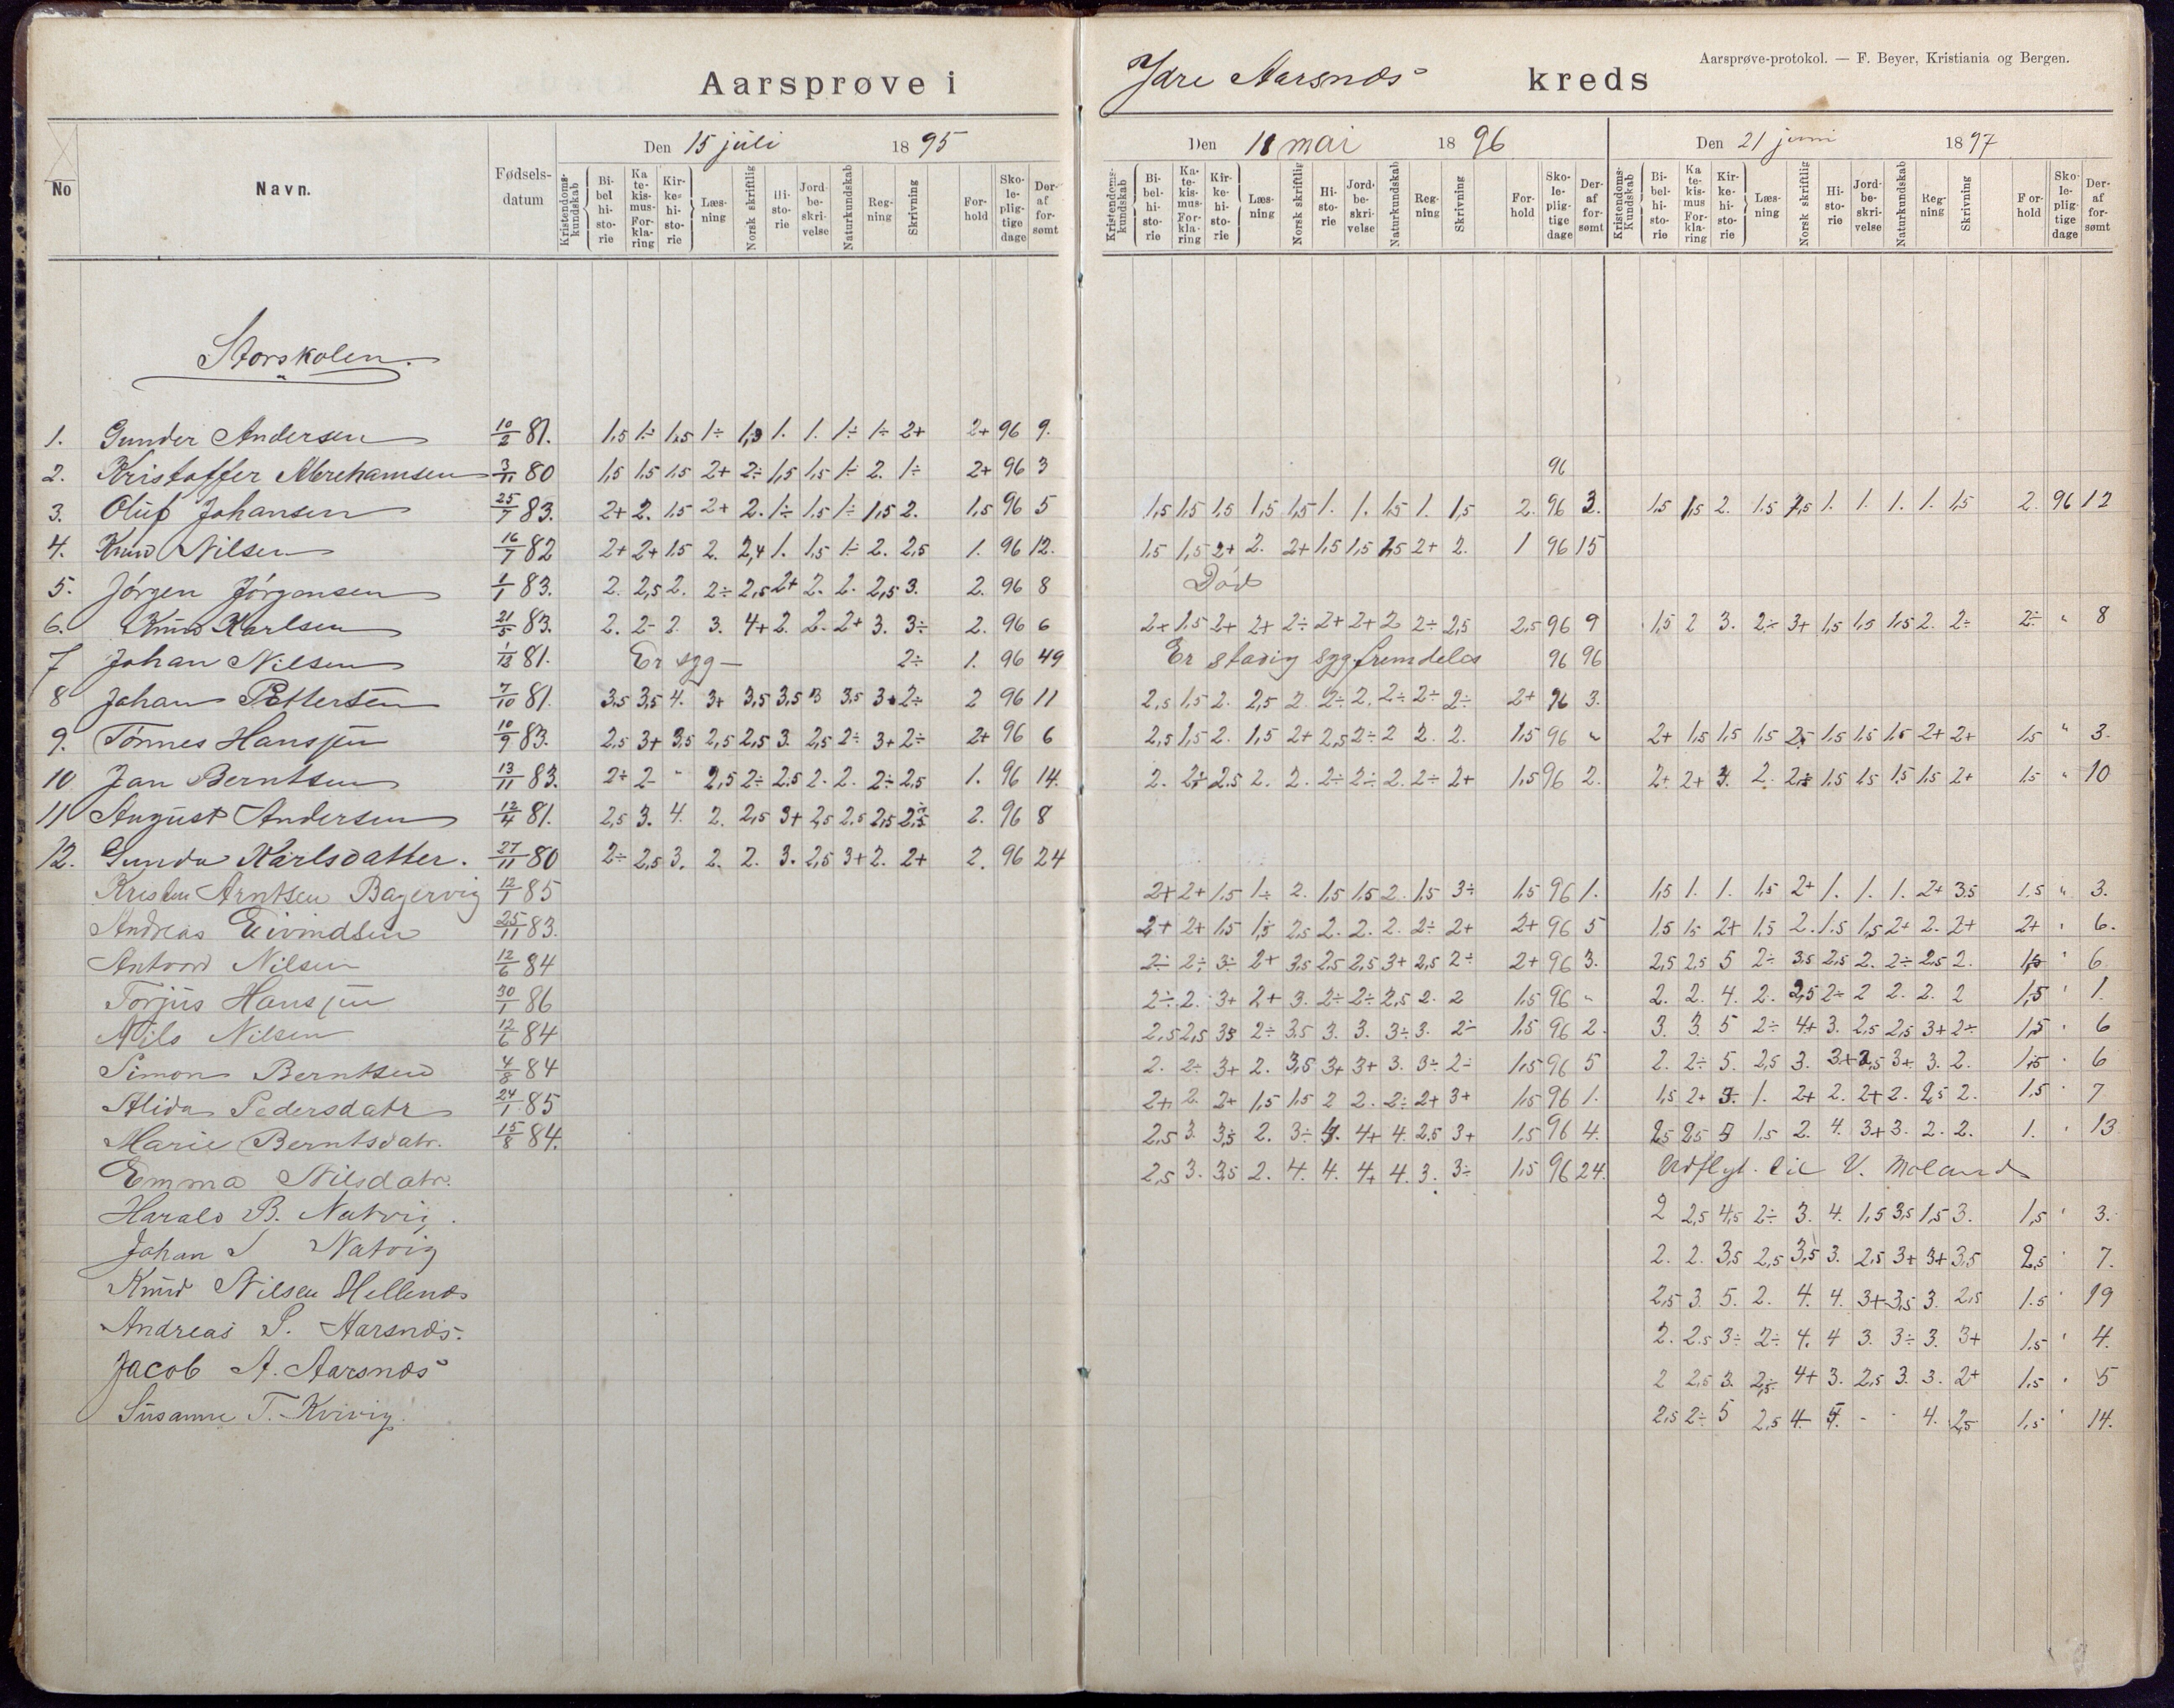 Aarsprøve i Ydre Aarsnæs kreds
Aarsprøve-protokol. — F. Beyer, Kristiania og Bergen.
Den 15 juli 1895
Den 18 mai 1896
Den 21 juni 1897
No Navn. Fødsels-datum Kristendoms-kundskab Bi-bel hi-sto-rie Ka te-kis-mus-For-kla-ring Kir-ke-hi-sto-rie Læs-ning Norsk skriftlig Hi-sto-rie Jord-be-skri-velse Naturkundskab Reg-ning Skrivning For-hold Sko-le-plig-tige dage Der-af for-sømt
Kristendoms-kundskab Bi-bel-hi-sto-rie Ka-te-kis-mus-For-kla-ring Kir-ke-hi-sto-rie Læs-ning Norsk skriftlig Hi-sto-rie Jord-be-skri-velse Naturkundskab Reg-ning Skrivning For-hold Sko-le-plig-tige dage Der-af for-sømt
Kristendoms-Kundskab Bi-bel-hi-sto-rie Ka te-kis-mus For-kla-ring Kir-ke-hi-sto-rie Læs-ning Norsk skriftlig Hi-sto-rie Jord-be-skri-velse Naturkundskab Reg-ning Skrivning For-hold Sko-le-plig-tige dage Der-af for-sømt
Storskolen.
1. Gunder Andersen 10/2 81. 1,5 1÷ 1,5 1÷ 1. 1. 1÷ 1÷ 2+ 2+ 96 9.
2. Kristoffer Abrehamsen 3/11 80 1,5 1.5 1.5 2+ 2÷ 1,5 1,5 1÷ 2. 1÷ 2+ 96 3 96
3. Oluf Johansen 25/7 83. 2+ 2. 1.5 2+ 2. 1÷ 1.5 1÷ 1,5 2. 1,5 96 5 1,5 1,5 1,5 1,5 1,5 1. 1. 1,5 1. 1,5 2. 96 3. 1.5 1,5 2. 1.5 1,5 1. 1. 1. 1. 1,5 2. 96 12
4. Knud Nilsen 16/7 82 2+ 2+ 1.5 2. 2,4 1. 1,5 1÷ 2. 2,5 1. 96 12. 1.5 1,5 2+ 2. 2+ 1,5 1,5 1,5 2+ 2. 1 96 15
5. Jørgen Jørgensen 1/1 83. 2. 2,5 2. 2÷ 2,5 2+ 2. 2. 2,5 3. 2. 96 8 Død
6. Knud Karlsen 21/5 83. 2. 2- 2. 3. 4+ 2. 2. 2+ 3. 3÷ 2. 96 6 2+ 1.5 2+ 2+ 2÷ 2+ 2+ 2 2÷ 2,5 2,5 96 9 1,5 2 3. 2÷ 3+ 1,5 1,5 1.5 2. 2÷ 2÷ " 8
7 Johan Nilsen 1/12 81. Er syg — 2÷ 1. 96 49 Er stadig syg fremdeles 96 96
8 Johan Pettersen 7/10 81. 3,5 3,5 4. 3+ 3,5 3,5 3 3,5 3+ 2÷ 2 96 11 2,5 1.5 2. 2,5 2. 2÷ 2. 2÷ 2÷ 2÷ 2+ 96 3.
9. Tønnes Hansen 10/9 83. 2.5 3+ 3,5 2,5 2,5 3. 2,5 2÷ 3+ 2÷ 2+ 96 6 2,5 1,5 2. 1,5 2+ 2,5 2÷ 2 2. 2. 1,5 96 " 2+ 1,5 1,5 1.5 2,5 1.5 1.5 1.5 2+ 2+ 1.5 " 3.
10 Jan Berntsen 13/11 83. 2÷ 2- " 2,5 2÷ 2.5 2. 2. 2÷ 2,5 1. 96 14. 2. 2÷ 2.5 2. 2. 2÷ 2÷ 2. 2÷ 2+ 1,5 96 2. 2+ 2+ 3. 2. 2÷ 1.5 1.5 1.5 1.5 2+ 1.5 " 10
11 August Andersen 12/4 81. 2,5 3. 4. 2. 2,5 3+ 2,5 2.5 2,5 2,5 2. 96 8
12. Gunda Karlsdatter. 27/11 80 2÷ 2,5 3. 2. 2. 3. 2,5 3+ 2. 2+ 2. 96 24
Kristen Arntsen Bagervig 12/1 85 2+ 2+ 1.5 1÷ 2. 1.5 1.5 2. 1.5 3÷ 1.5 96 1. 1,5 1. 1. 1.5 2+ 1. 1. 1. 2+ 3.5 1.5 " 3.
Andreas Eivindsen 25/11 83. 2+ 2+ 1.5 1,5 2.5 2. 2. 2. 2÷ 2+ 2+ 96 5 1.5 1.5 2+ 1.5 2. 1.5 1,5 2+ 2. 2+ 2+ " 6.
Antoni Nilsen 12/6 84 2÷ 2÷ 3÷ 2+ 3,5 2,5 2,5 3+ 2,5 2÷ 2+ 96 3. 2,5 2,5 5 2÷ 3.5 2,5 2. 2÷ 2,5 2. 1,5 " 6
Torjus Hansen 30/1 86 2÷ 2. 3+ 2+ 3. 2÷ 2÷ 2,5 2. 2 1.5 96 " 2. 2. 4. 2. 2,5 2÷ 2 2. 2. 2 1,5 " 1.
Nils Nilsen 12/6 84 2,5 2,5 3,5 2÷ 3.5 3. 3. 3÷ 3. 2÷ 1.5 96 2. 3. 3. 5 2÷ 4+ 3. 2,5 2,5 3+ 2÷ 1,5 " 6
Simon Berntsen 4/8 84 2. 2÷ 3+ 2. 3,5 3+ 3+ 3. 3÷ 2÷ 1.5 96 5 2. 2÷ 5. 2,5 3. 3+ 2,5 3+ 3. 2. 1,5 " 6
Alida Pedersdatr 24/1 85 2+ 2. 2+ 1.5 1.5 2 2. 2÷ 2+ 3+ 1.5 96 1. 1,5 2+ 3. 1. 2+ 2. 2+ 2. 2,5 2. 1,5 " 7
Marie Berntsdatr. 15/8 84. 2,5 3. 3,5 2. 3÷ 4. 4+ 4. 2.5 3+ 1,5 96 4. 2,5 2,5 5 1.5 2. 4. 3+ 3. 2. 2. 1. " 13
Emma Nilsdatr. 2,5 3. 3,5 2. 4. 4. 4+ 4. 3. 3÷ 1,5 96 24. Udflyt. til V. Moland
Harald B. Natvig. 2 2,5 4,5 2÷ 3. 4. 1,5 3,5 1,5 3. 1,5 " 3.
Johan S Natvig 2. 2. 3,5 2,5 3,5 3. 2,5 3+ 3+ 3,5 2,5 " 7.
Knud Nilsen Hellenæs 2,5 3. 5. 2. 4. 4. 3+ 3,5 3. 2,5 1.5 " 19
Andreas S. Aarsnæs. 2. 2.5 3÷ 2÷ 4. 4 3. 3÷ 3. 3+ 1.5 " 4.
Jacob A. Aarsnæs 2 2,5 3. 2÷ 4+ 3. 2,5 3. 3. 2+ 1.5 " 5
Susanne T. Kvivig. 2,5 2÷ 5 2,5 4. - - 4. 2,5 1,5 " 14.